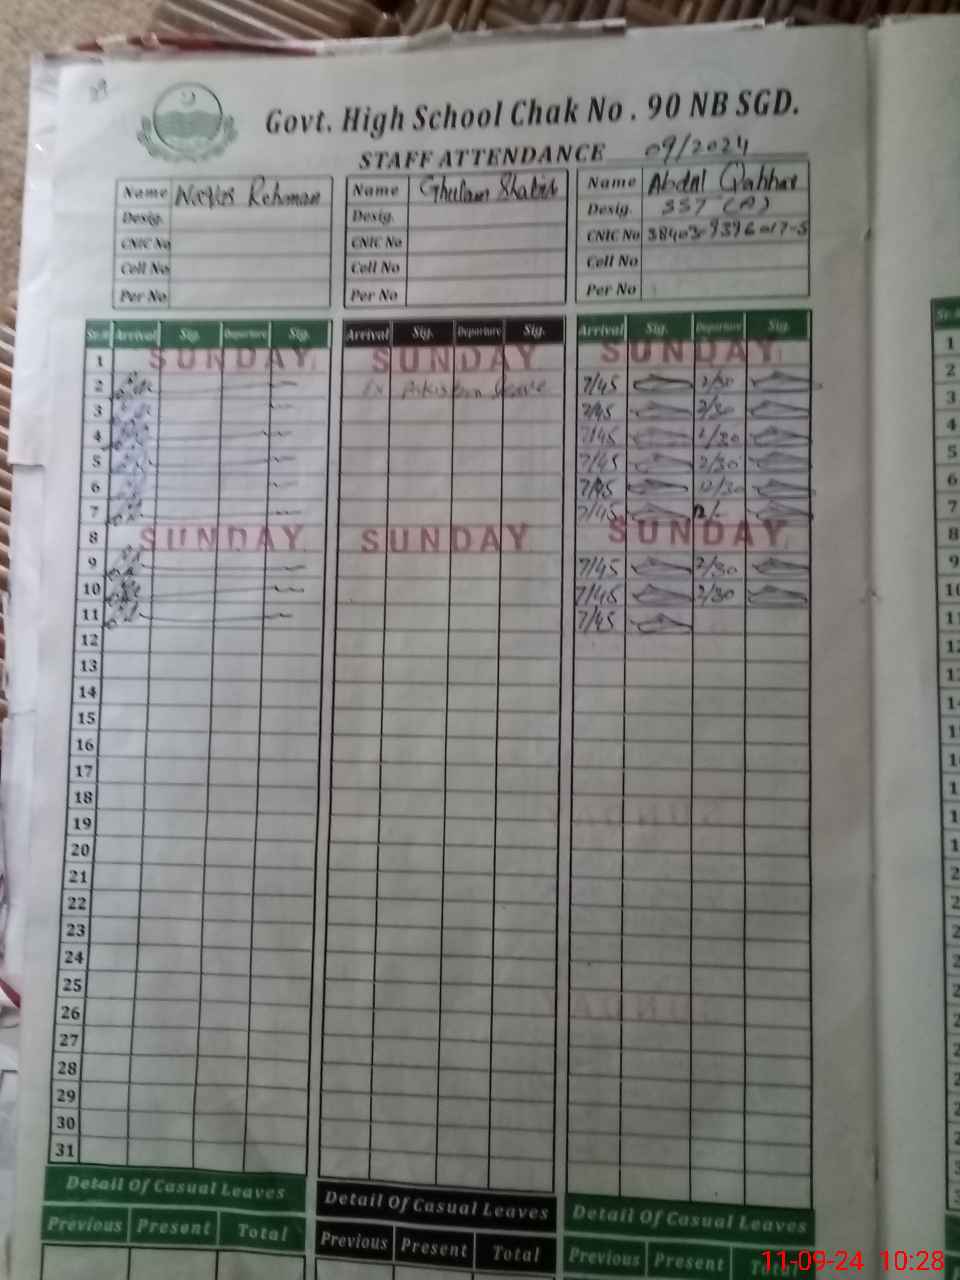 Govt. High School Chak No . 90 NB SGD.
STAFF ATTENDANCE 09/2024
Name Rehman
Desig.
CNIC No
Cell No
Per No
Name Ghulam Shabir
Desig.
CNIC No
Cell No
Per No
Name Abdul Qahhar
Desig.
CNIC No
Cell No
Per No
Sr.# Arrival Sig. Departure Sig. Arrival Sig. Departure Sig. Arrival Sig. Departure Sig.
1 SUNDAY SUNDAY SUNDAY
2 Ex Pakistan Leave 7/45 2/30
3 7/45 2/30
4 7/45 2/30
5 7/45 2/30
6 7/45 12/30
7 7/45
8 SUNDAY SUNDAY SUNDAY
9 7/45 2/30
10 7/45 2/30
11 7/45
12
13
14
15
16
17
18
19
20
21
22
23
24
25
26
27
28
29
30
31
Detail Of Casual Leaves Detail Of Casual Leaves Detail Of Casual Leaves
Previous Present Total Previous Present Total Previous Present Total
11-09-24 10:28